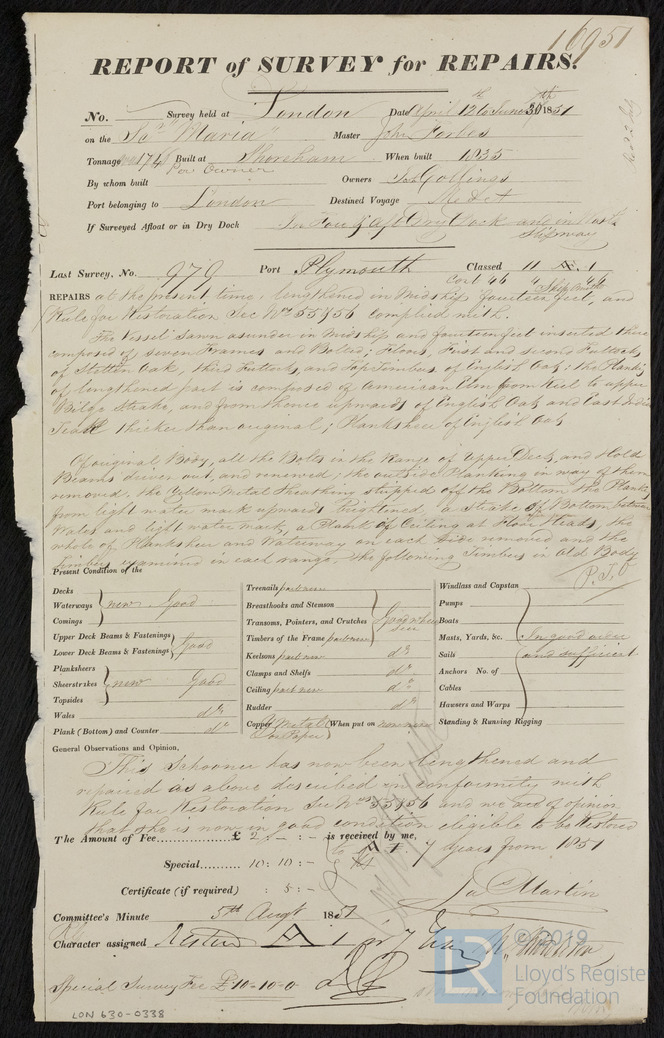 16951
REPORT of SURVEY for REPAIRS.
No. Survey held at London Date April 12 to June 30th 1851
on the Sr "Maria" Master John Forbes
Tonnage 174 Built at Shoreham When built 1835
Per Owner
By whom built Owners Jas Gollings
Port belonging to London Destined Voyage Medit
If Surveyed Afloat or in Dry Dock In Dry Dock and in
Slipway
Last Survey, No. 979 Port Plymouth Classed 11 A. 1
Cont 46
REPAIRS at the present time, lengthened in Midship fourteen feet, and
Rule for Restoration Sec Nos 55 & 56 complied with.
The Vessel Sawn asunder in Midship and fourteen feet inserted there
composed of seven Frames and Bolted; Floors, First and second Futtocks
of Stettin Oak, third Futtocks, and Toptimbers of English Oak; the Planking
of lengthened part is composed of American Elm from Keel to upper
Bilge Strake, and from thence upwards of English Oak and East India
Teak thicker than original; Planksheer of English Oak
Of original Body, all the Bolts in the Range of Upper Deck, and Hold
Beams driven out, and renewed; the outside Planking in way of them
removed, the Yellow Metal Sheathing stripped off the Bottom the Planks
from light water mark upwards brightened, a strake of Bottom between
Wales and light water mark, a Plank of Ceiling at Floor Heads, the
whole of Planksheer and Waterway on each side removed and the
timbers examined in each range. The following Timbers in Old Body
P.T.O
Present Condition of the
Decks
Waterways new Good
Comings
Upper Deck Beams & Fastenings
Lower Deck Beams & Fastenings Good
Planksheers
Sheerstrakes new Good
Topsides
Wales do
Plank (Bottom) and Counter do
Treenails part new
Breasthooks and Stemson
Transoms, Pointers, and Crutches Good where seen
Timbers of the Frame part new
Keelsons part new do
Clamps and Shelfs do
Ceiling part new do
Rudder do
Copper Y Metal (When put on now new
over Paper)
Windlass and Capstan
Pumps
Boats
Masts, Yards, &c. In good order
Sails and sufficient
Anchors No. of
Cables
Hawsers and Warps
Standing & Running Rigging
General Observations and Opinion,
This Schooner has now been lengthened and
repaired as above described in conformity with
Rule for Restoration Sec Nos 55 & 56 and we are of opinion
that she is now in good condition eligible to be Restored
The Amount of Fee £ 2 : - : - is received by me, to A 1 7 years from 1851
Special 10 : 10 : -
Certificate (if required) : 5 : -
Jas Martin
Committee's Minute 5th Augt 1851
Character assigned Restored A 1 for 7 Years
Special Survey Fee £10-10-0
LON 630-0338
©2019
LR
Lloyd's Register
Foundation